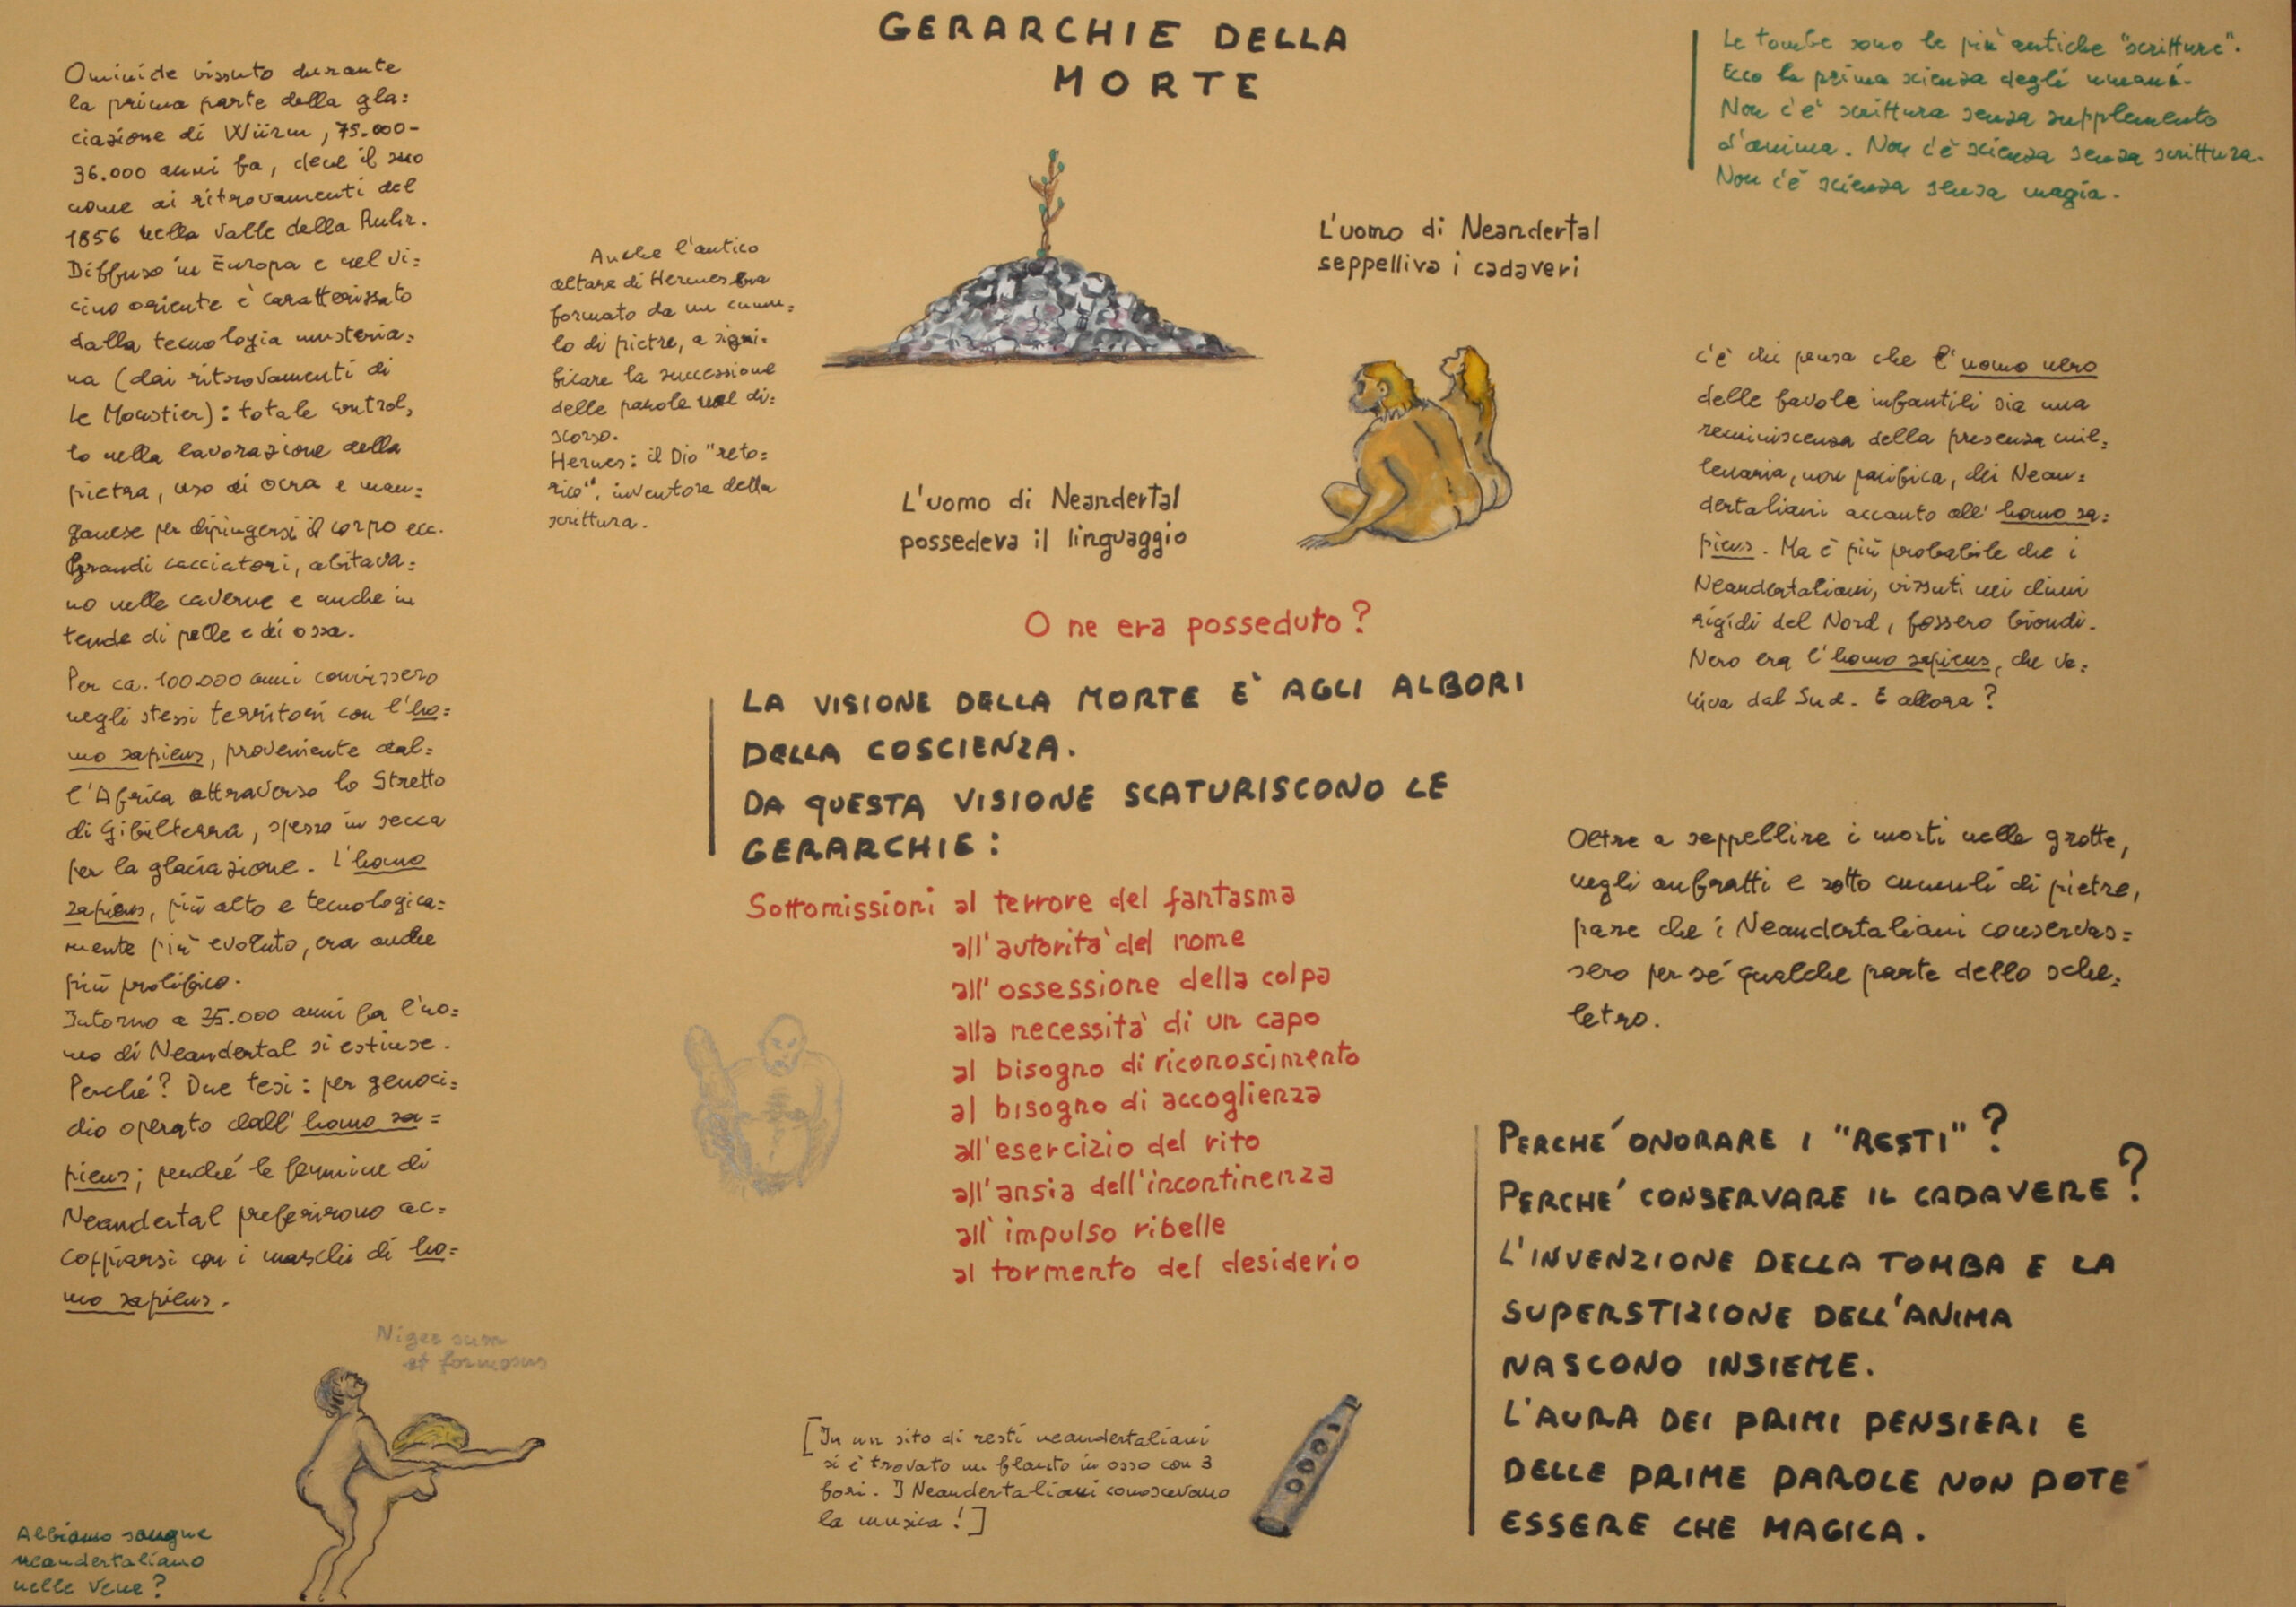 GERARCHIE DELLA
MORTE
Ominide vissuto durante
la prima parte della gla=
ciazione di Würm, 75.000-
36.000 anni fa, deve il suo
nome ai ritrovamenti del
1856 nella Valle della Ruhr.
Diffuso in Europa e nel vi=
cino oriente è caratterizzato
dalla tecnologia musteria=
na (dai ritrovamenti di
Le Moustier): totale control,
lo nella lavorazione della
pietra, uso di ocra e man=
ganese per dipingersi il corpo ecc.
Grandi cacciatori, abitava=
no nelle caverne e anche in
tende di pelle e di ossa.
Per ca. 100.000 anni convissero
negli stessi territori con l'ho=
mo sapiens, proveniente dal=
l'Africa attraverso lo Stretto
di Gibilterra, spesso in secca
per la glaciazione. L'homo
sapiens, più alto e tecnologica=
mente più evoluto, era anche
più prolifico.
Intorno a 35.000 anni fa l'uo=
mo di Neandertal si estinse.
Perché? Due tesi: per genoci=
dio operato dall'homo sa=
piens; perché le femmine di
Neandertal preferirono ac=
coppiarsi con i maschi di ho=
mo sapiens.
Niger sum
et formosus
Abbiamo sangue
neandertaliano
nelle vene?
Anche l'antico
altare di Hermes era
formato da un cumu=
lo di pietre, a signi=
ficare la successione
delle parole nel di=
scorso.
Hermes: il Dio "reto=
rico", inventore della
scrittura.
L'uomo di Neandertal
seppelliva i cadaveri
L'uomo di Neandertal
possedeva il linguaggio
O ne era posseduto?
LA VISIONE DELLA MORTE E' AGLI ALBORI
DELLA COSCIENZA.
DA QUESTA VISIONE SCATURISCONO LE
GERARCHIE:
Sottomissioni al terrore del fantasma
all'autorità del nome
all'ossessione della colpa
alla necessità di un capo
al bisogno di riconoscimento
al bisogno di accoglienza
all'esercizio del rito
all'ansia dell'incontinenza
all'impulso ribelle
al tormento del desiderio
[In un sito di resti neandertaliani
si è trovato un flauto in osso con 3
fori. I Neandertaliani conoscevano
la musica!]
Le tombe sono le più antiche "scritture".
Ecco la prima scienza degli umani.
Non c'è scrittura senza supplemento
d'anima. Non c'è scienza senza scrittura.
Non c'è scienza senza magia.
C'è chi pensa che l'uomo nero
delle favole infantili sia una
reminiscenza della presenza mil=
lenaria, non pacifica, dei Nean=
dertaliani accanto all'homo sa=
piens. Ma è più probabile che i
Neandertaliani, vissuti nei climi
rigidi del Nord, fossero biondi.
Nero era l'homo sapiens, che ve=
niva dal Sud. E allora?
Oltre a seppellire i morti nelle grotte,
negli anfratti e sotto cumuli di pietre,
pare che i Neandertaliani conservas=
sero per sé qualche parte dello sche=
letro.
PERCHE' ONORARE I "RESTI"?
PERCHE' CONSERVARE IL CADAVERE?
L'INVENZIONE DELLA TOMBA E LA
SUPERSTIZIONE DELL'ANIMA
NASCONO INSIEME.
L'AURA DEI PRIMI PENSIERI E
DELLE PRIME PAROLE NON POTE'
ESSERE CHE MAGICA.